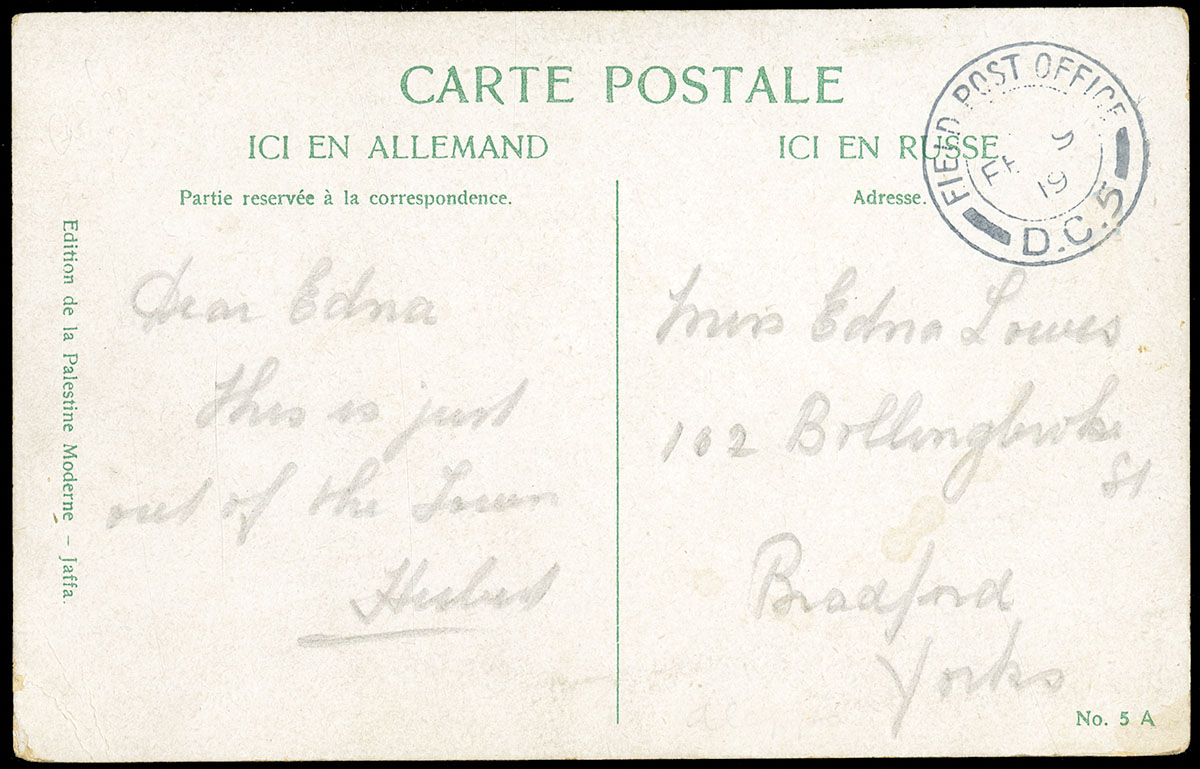 CARTE POSTALE
ICI EN ALLEMAND
ICI EN RUSSE
Partie reservée à la correspondence.
Adresse.
FIELD POST OFFICE
19
D.C.5
Edition de la Palestine Moderne – Jaffa.
Dear Edna
This is just
out of the Town
Herbert
Miss Edna Lowes
102 Bollingbroke
St
Bradford
Yorks
No. 5 A